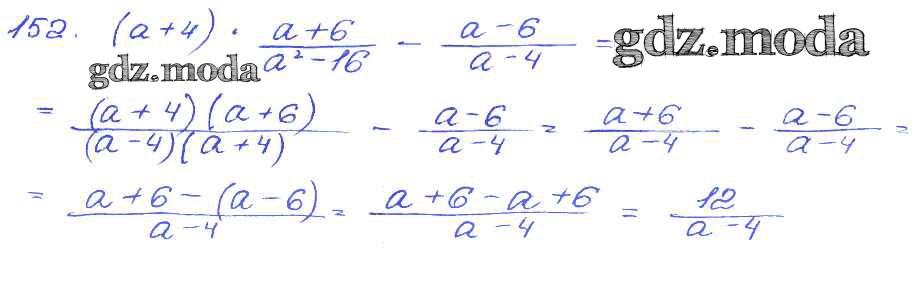 152. (a+4) · (a+6)/(a²-16) - (a-6)/(a-4) = gdz.moda
gdz.moda
= ((a+4)(a+6))/((a-4)(a+4)) - (a-6)/(a-4) = (a+6)/(a-4) - (a-6)/(a-4) =
= (a+6-(a-6))/(a-4) = (a+6-a+6)/(a-4) = 12/(a-4)